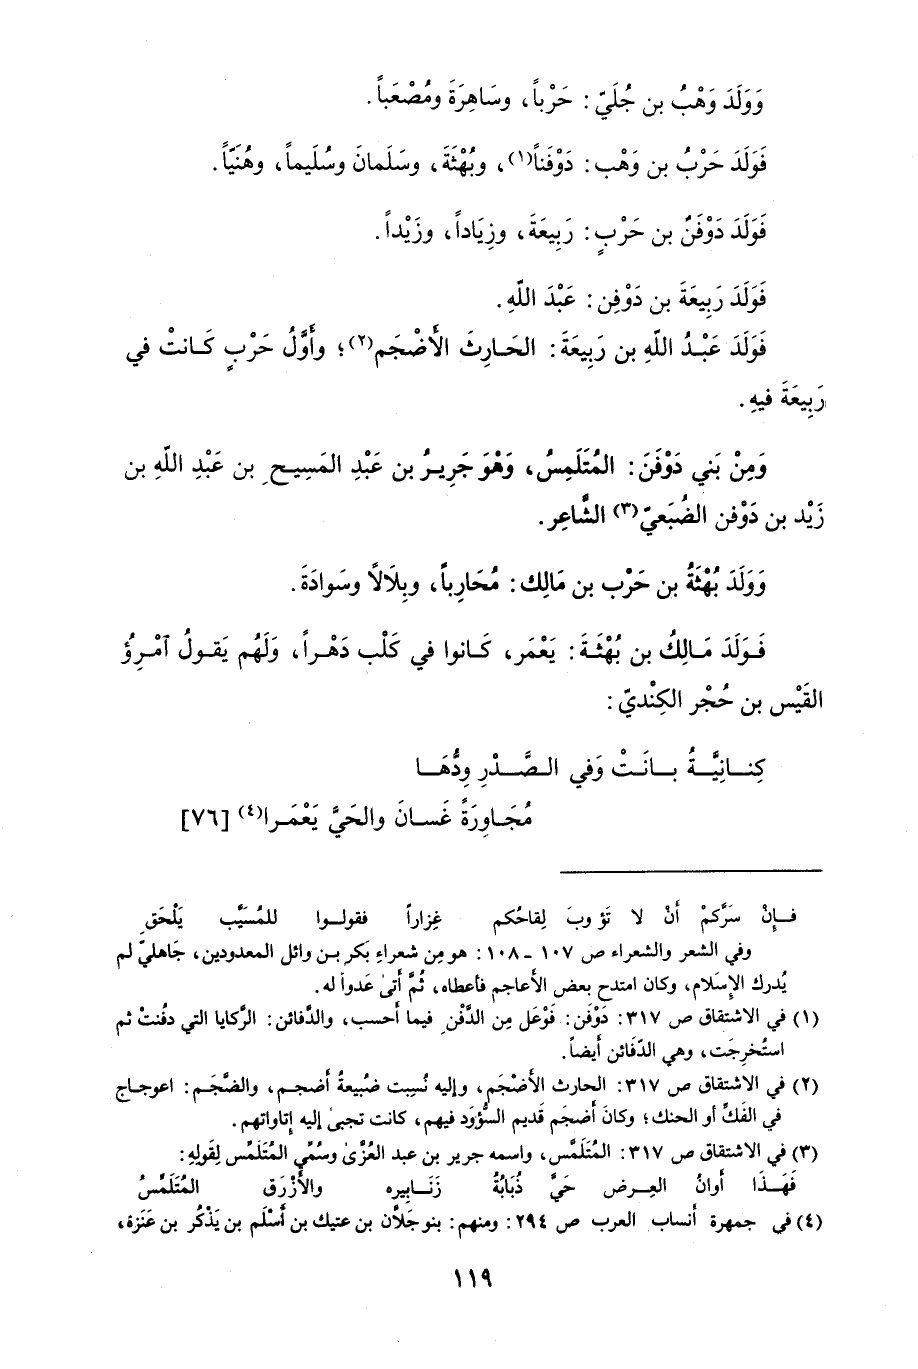 وَوَلَدَ وَهْبُ بن جُلَيّ: حَرْباً، وسَاهِرَةَ ومُصْعَباً.
فَوَلَدَ حَرْبُ بن وَهْب: دَوْفَناً(١)، وبُهْثَةَ، وسَلَمانَ وسُلَيماً، وهُنَيّاً.
فَوَلَدَ دَوْفَنُ بن حَرْبٍ: رَبِيعَةَ، وزِيَاداً، وزَيْداً.
فَوَلَدَ رَبِيعَةَ بن دَوْفِن: عَبْدَ اللّهِ.
فَوَلَدَ عَبْدُ اللّهِ بن رَبِيعَةَ: الحَارِثَ الأَضْجَم(٢)؛ وأَوَّلُ حَرْبٍ كَانتْ في
رَبِيعَةَ فيهِ.
وَمِنْ بَني دَوْفَنَ: المُتَلَمِسُ، وَهْوَ جَرِيرُ بن عَبْدِ المَسِيحِ بن عَبْدِ اللّهِ بن
زَيْد بن دَوْفن الضُبَعيّ(٣) الشَّاعِر.
وَوَلَدَ بُهْثَةُ بن حَرْب بن مَالِك: مُحَارِباً، وبِلَالاً وسَوادَةَ.
فَوَلَدَ مَالِكُ بن بُهْثَةَ: يَعْمَر، كَانوا في كَلْب دَهْراً، وَلَهُم يَقولُ آمْرِؤُ
القَيْس بن حُجْر الكِنْديّ:
كِنانِيَّةُ بانَتْ وَفي الصَّدْرِ ودُّهَا
مُجَاوِرَةً غَسانَ والحَيَّ يَعْمَرا(٤) [٧٦]
فإِنْ سَرَّكمْ أَنْ لا تَؤوبَ لِقاحُكم غِزاراً فقولوا للمُسَيَّب يَلْحَقِ
وفي الشعر والشعراء ص ١٠٧ - ١٠٨: هو مِن شعراءِ بَكر بن وائل المعدودين، جَاهليّ لم
يُدرك الإِسَلام، وكان امتدح بعض الأعاجم فأعطاه، ثُمَّ أتىٰ عَدواً له.
(١) في الاشتقاق ص ٣١٧: دَوْفَن: فَوْعَل مِن الدَّفْنِ فيما أحسب، والدَّفائن: الرَّكايا التي دفُنتْ ثم
استُخرِجَت، وهي الدّفَائن أيضاً.
(٢) في الاشتقاق ص ٣١٧: الحارث الأضْجَم، وإليه نُسِبت ضُبيعةُ أضجم، والضَّجَم: اعوجاج
في الفَكِّ أو الحنك؛ وكانَ أضجَم قديم السؤوَد فيهم، كانت تجيىٰ إليه إتاواتهم.
(٣) في الاشتقاق ص ٣١٧: المُتَلمَّس، واسمه جرير بن عبد العُزَّىٰ وسُمِّي المُتَلَمِّس لِقَولهِ:
فَهَذَا أوانُ العِرض حَيَّ ذُبَابُةُ زَنَابِيره والأزْرَق المُتَلَمِّسُ
(٤) في جمهرة أنساب العرب ص ٢٩٤: ومنهم: بنو جَلاَّن بن عتيك بن أَسْلَم بن يَذْكُر بن عَنَزة،
١١٩